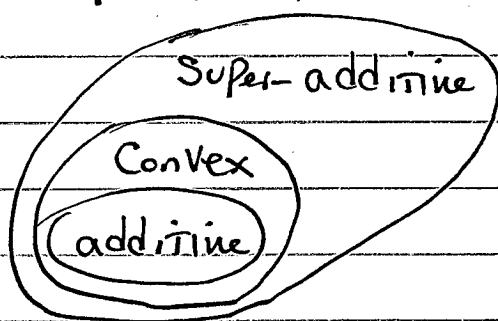 Super-additive
Convex
additive